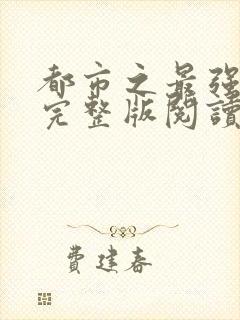 都市之最强
完整版閱讀
費建春